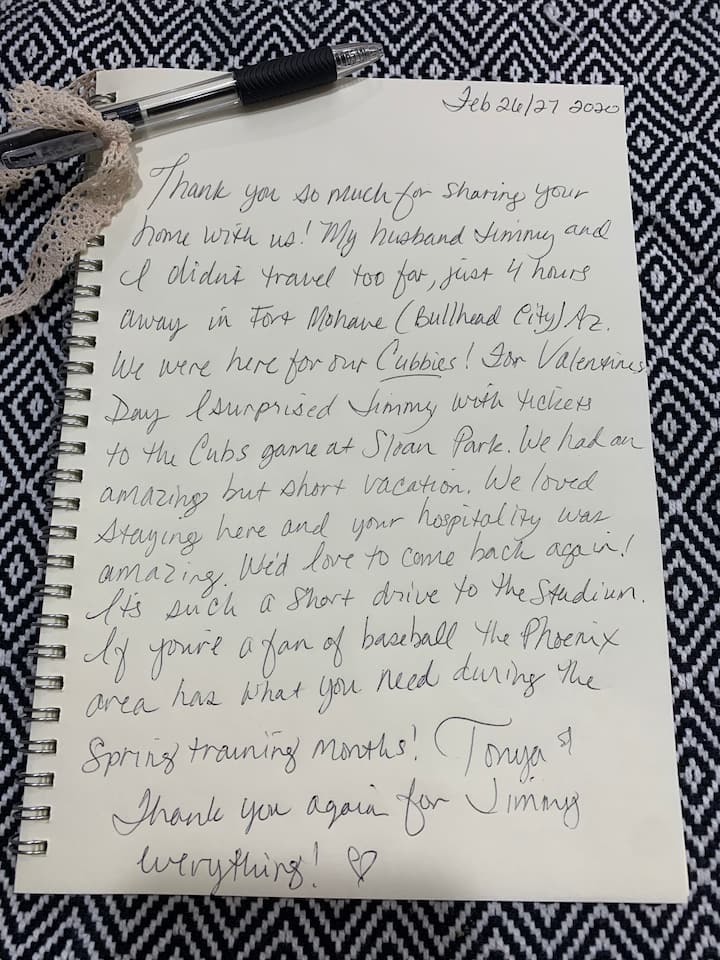 Feb 26/27 2020
Thank you so much for sharing your
home with us! My husband Jimmy and
I didn't travel too far, just 4 hours
away in Fort Mohave (Bullhead City) Az.
We were here for our Cubbies! For Valentines
Day I surprised Jimmy with tickets
to the Cubs game at Sloan Park. We had an
amazing but short vacation. We loved
staying here and your hospitality was
amazing. We'd love to come back again!
It's such a short drive to the Stadium.
If you're a fan of baseball the Phoenix
area has what you need during the
Spring training months! Tonya &
Thank you again for Jimmy
everything! ♡